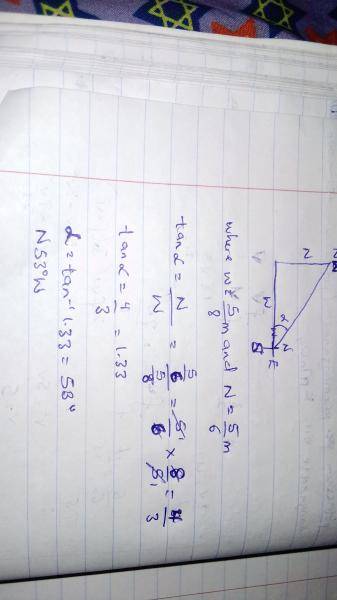 N
W
α
N
E
where W = 5/8 m and N = 5/6 m
tan α = N/W = 5/6 / 5/8 = 5/6 × 8/5 = 4/3
tan α = 4/3 = 1.33
α = tan⁻¹ 1.33 = 53°
N53°W